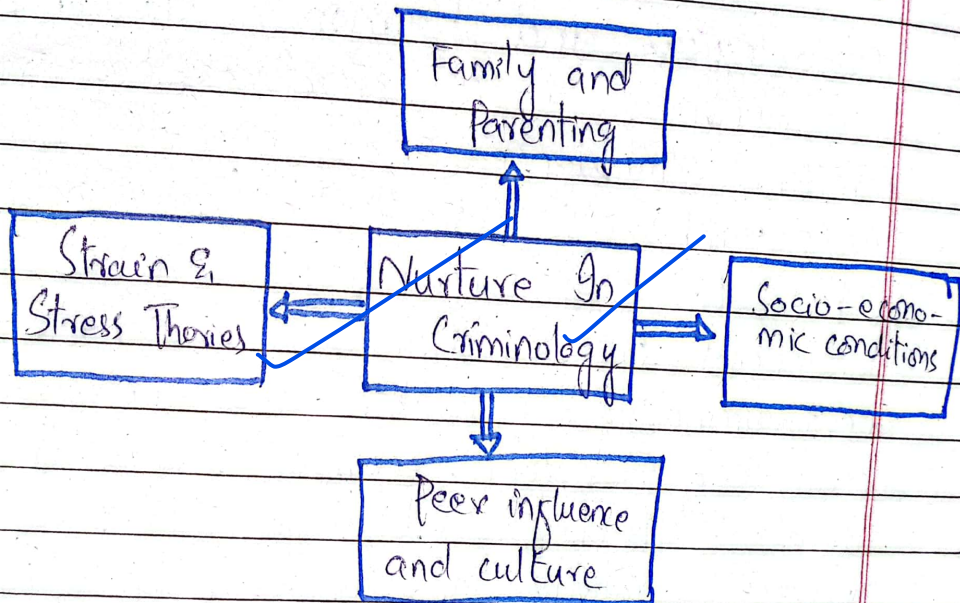 Family and
Parenting
Strain &
Stress Thories
Nurture In
Criminology
Socio-econo-
mic conditions
Peer influence
and culture